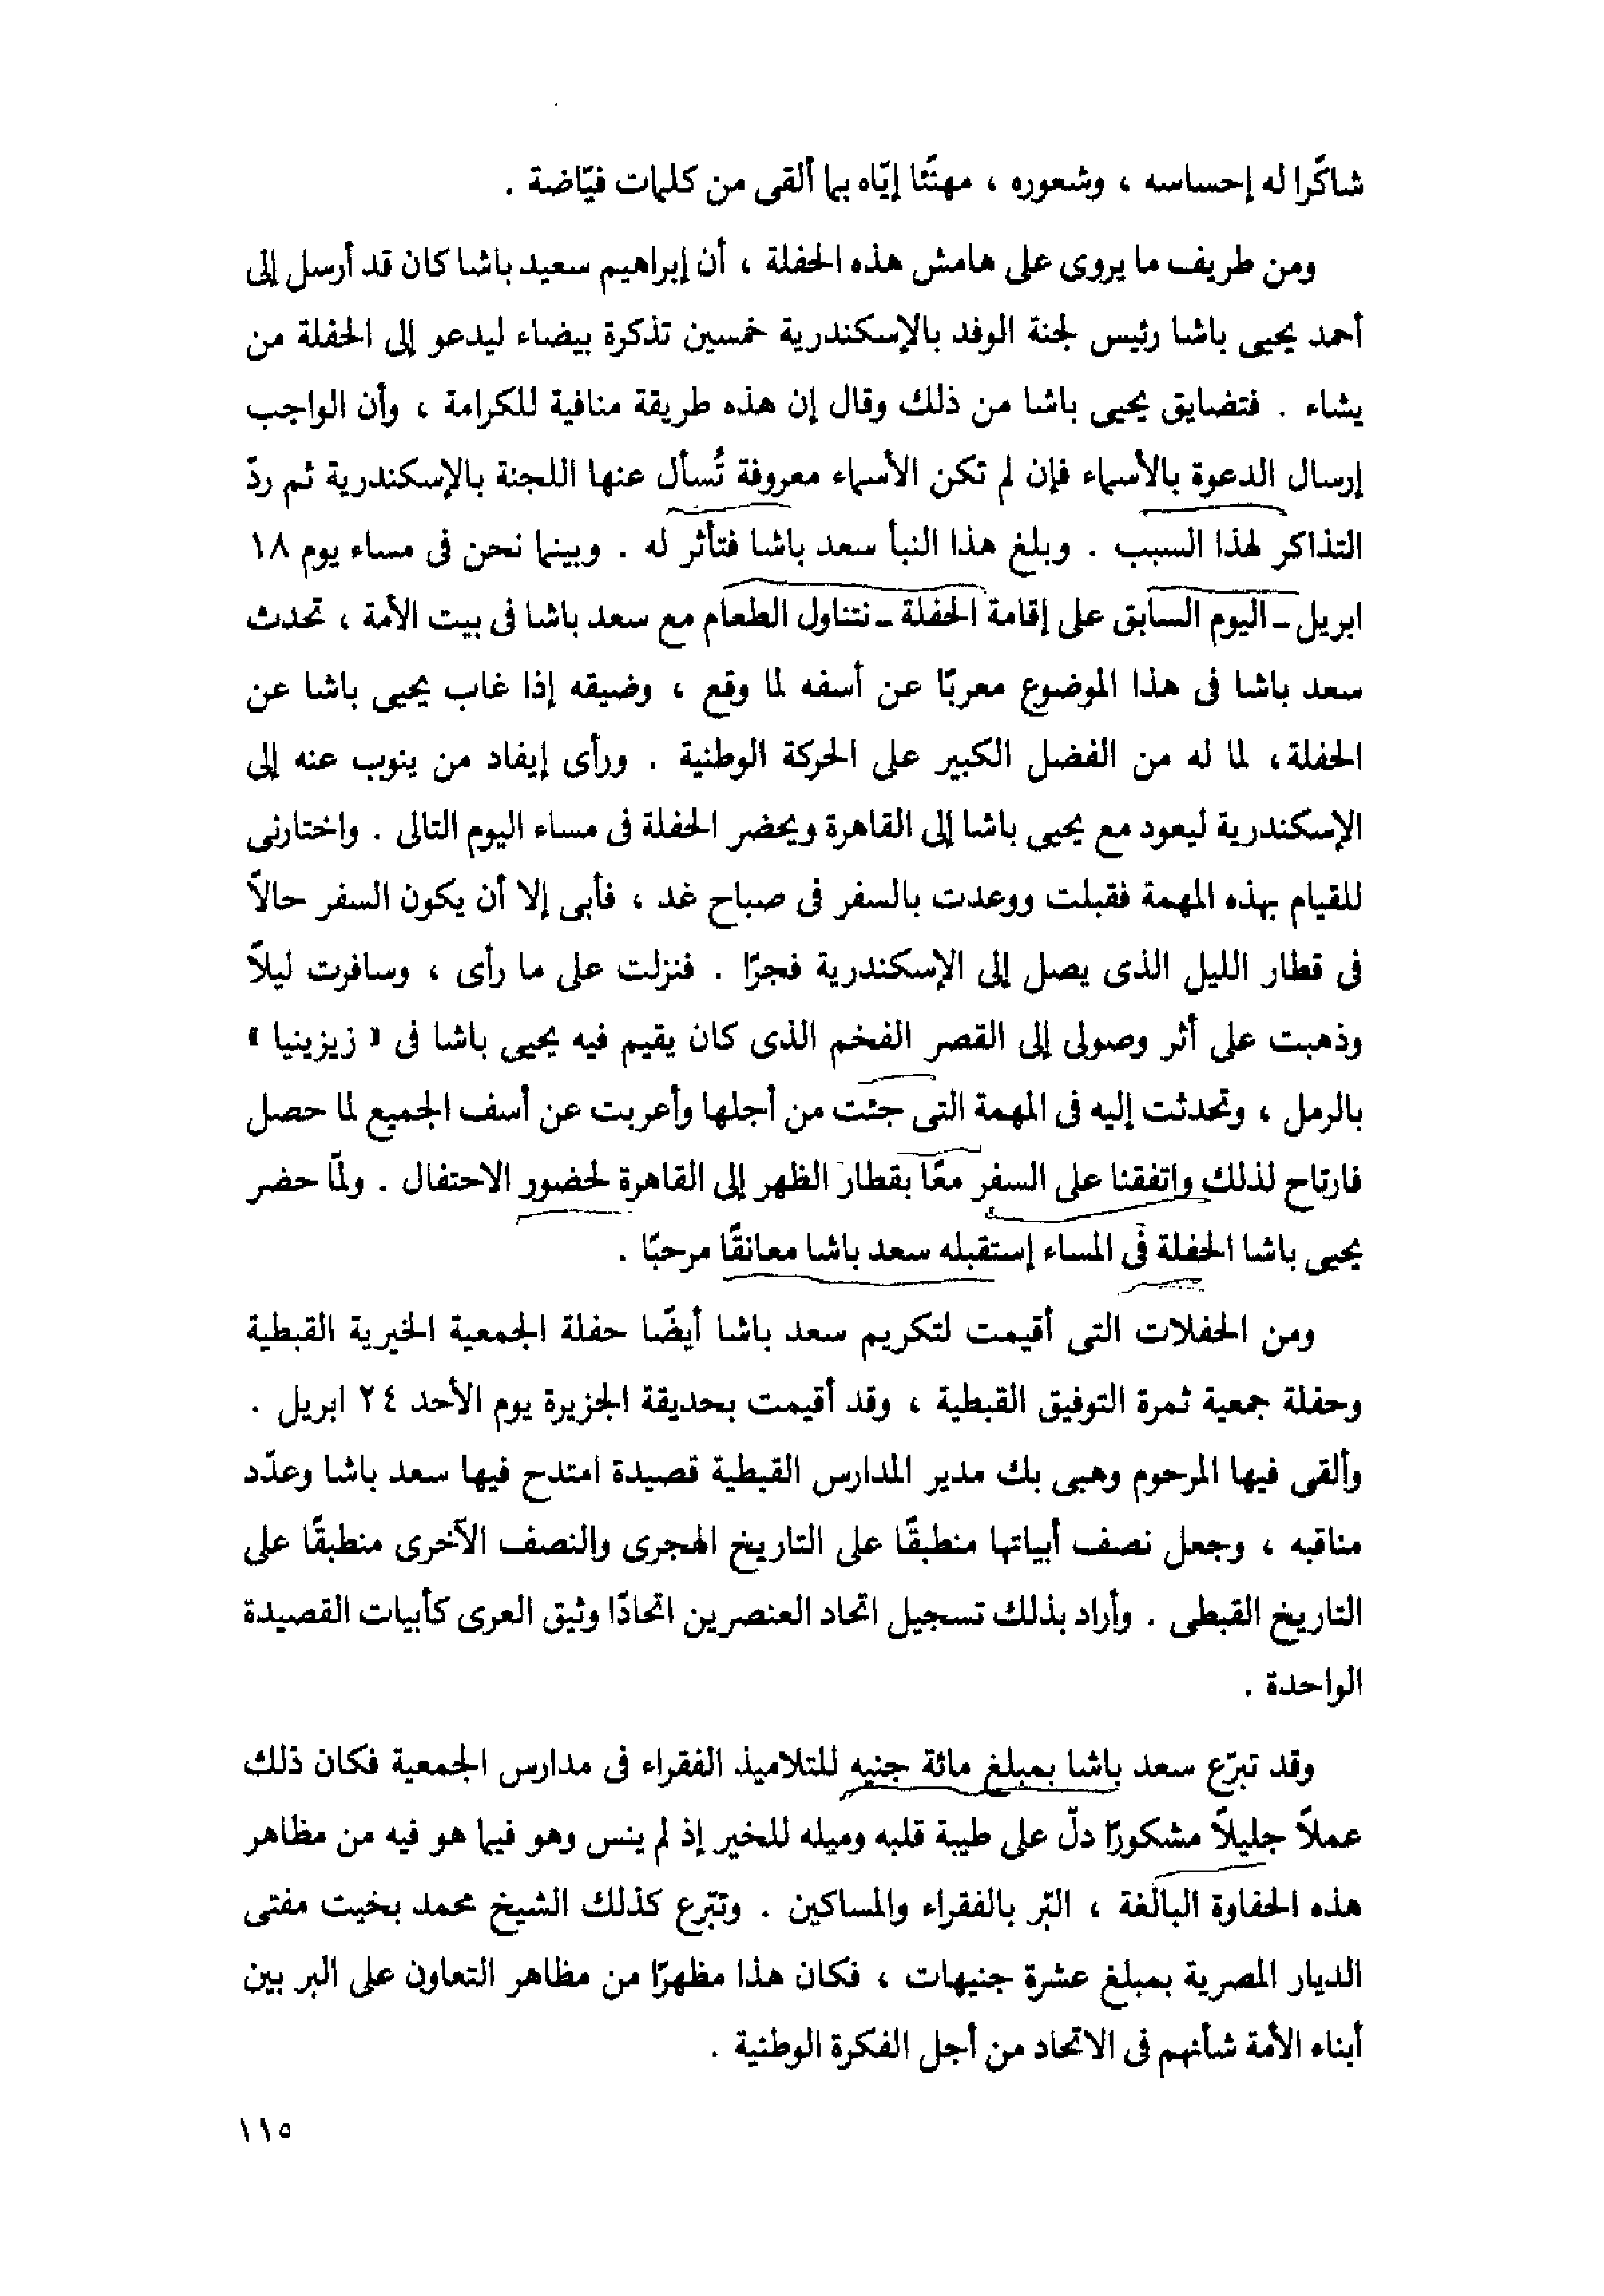 شاكرًا له إحساسه ، وشعوره ، مهنّئا إيّاه بما ألقى من كلمات فيّاضة .
ومن طريف ما يروى على هامش هذه الحفلة ، أن إبراهيم سعيد باشا كان قد أرسل إلى
أحمد يحيى باشا رئيس لجنة الوفد بالإسكندرية خمسين تذكرة بيضاء ليدعو إلى الحفلة من
يشاء . فتضايق يحيى باشا من ذلك وقال إن هذه طريقة منافية للكرامة ، وأن الواجب
إرسال الدعوة بالأسماء فإن لم تكن الأسماء معروفة تُسأل عنها اللجنة بالإسكندرية ثم ردّ
التذاكر لهذا السبب . وبلغ هذا النبأ سعد باشا فتأثر له . وبينما نحن فى مساء يوم ١٨
ابريل ـ اليوم السابق على إقامة الحفلة ـ نتناول الطعام مع سعد باشا فى بيت الأمة ، تحدث
سعد باشا فى هذا الموضوع معربًا عن أسفه لما وقع ، وضيقه إذا غاب يحيى باشا عن
الحفلة ، لما له من الفضل الكبير على الحركة الوطنية . ورأى إيفاد من ينوب عنه إلى
الإسكندرية ليعود مع يحيى باشا إلى القاهرة ويحضر الحفلة فى مساء اليوم التالى . واختارنى
للقيام بهذه المهمة فقبلت ووعدت بالسفر فى صباح غد ، فأبى إلا أن يكون السفر حالاً
فى قطار الليل الذى يصل إلى الإسكندرية فجرًا . فنزلت على ما رأى ، وسافرت ليلاً
وذهبت على أثر وصولى إلى القصر الفخم الذى كان يقيم فيه يحيى باشا فى « زيزينيا »
بالرمل ، وتحدثت إليه فى المهمة التى جئت من أجلها وأعربت عن أسف الجميع لما حصل
فارتاح لذلك واتفقنا على السفر معًا بقطار الظهر إلى القاهرة لحضور الاحتفال . ولمّا حضر
يحيى باشا الحفلة فى المساء إستقبله سعد باشا معانقًا مرحبًا .
ومن الحفلات التى أقيمت لتكريم سعد باشا أيضًا حفلة الجمعية الخيرية القبطية
وحفلة جمعية ثمرة التوفيق القبطية ، وقد أقيمت بحديقة الجزيرة يوم الأحد ٢٤ ابريل .
وألقى فيها المرحوم وهبى بك مدير المدارس القبطية قصيدة امتدح فيها سعد باشا وعدّد
مناقبه ، وجعل نصف أبياتها منطبقًا على التاريخ الهجرى والنصف الآخرى منطبقًا على
التاريخ القبطى . وأراد بذلك تسجيل اتحاد العنصرين اتحادًا وثيق العرى كأبيات القصيدة
الواحدة .
وقد تبرّع سعد باشا بمبلغ مائة جنيه للتلاميذ الفقراء فى مدارس الجمعية فكان ذلك
عملاً جليلاً مشكورًا دلّ على طيبة قلبه وميله للخير إذ لم ينس وهو فيما هو فيه من مظاهر
هذه الحفاوة البالغة ، البّر بالفقراء والمساكين . وتبّرع كذلك الشيخ محمد بخيت مفتى
الديار المصرية بمبلغ عشرة جنيهات ، فكان هذا مظهرًا من مظاهر التعاون على البر بين
أبناء الأمة شأنهم فى الاتحاد من أجل الفكرة الوطنية .
١١٥